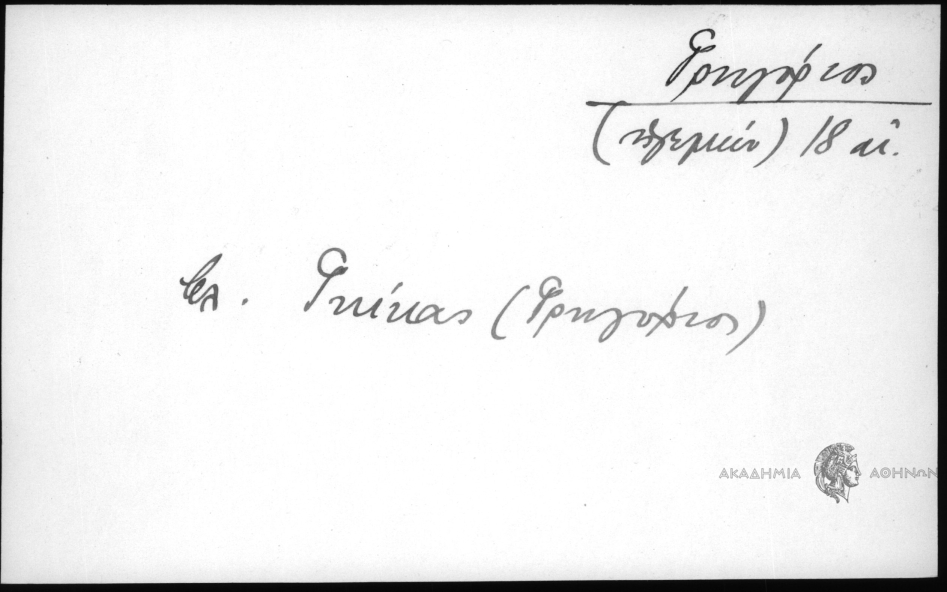 Γρηγόριος
18 αἰ.
βλ. Γκίκας (Γρηγόριος)
ΑΚΑΔΗΜΙΑ ΑΘΗΝΩΝ